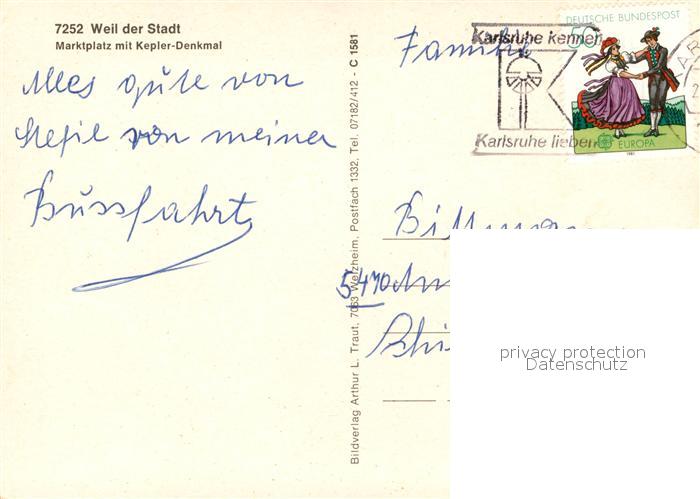 7252 Weil der Stadt
Marktplatz mit Kepler-Denkmal
Alles gute von
von meiner
Bussfahrt
Bildverlag Arthur L. Traut, 7063 Welzheim, Postfach 1332, Tel. 07182/412 - C 1581
Familie
5470
Karlsruhe kennen
Karlsruhe lieben
DEUTSCHE BUNDESPOST
50
EUROPA
1981
privacy protection
Datenschutz